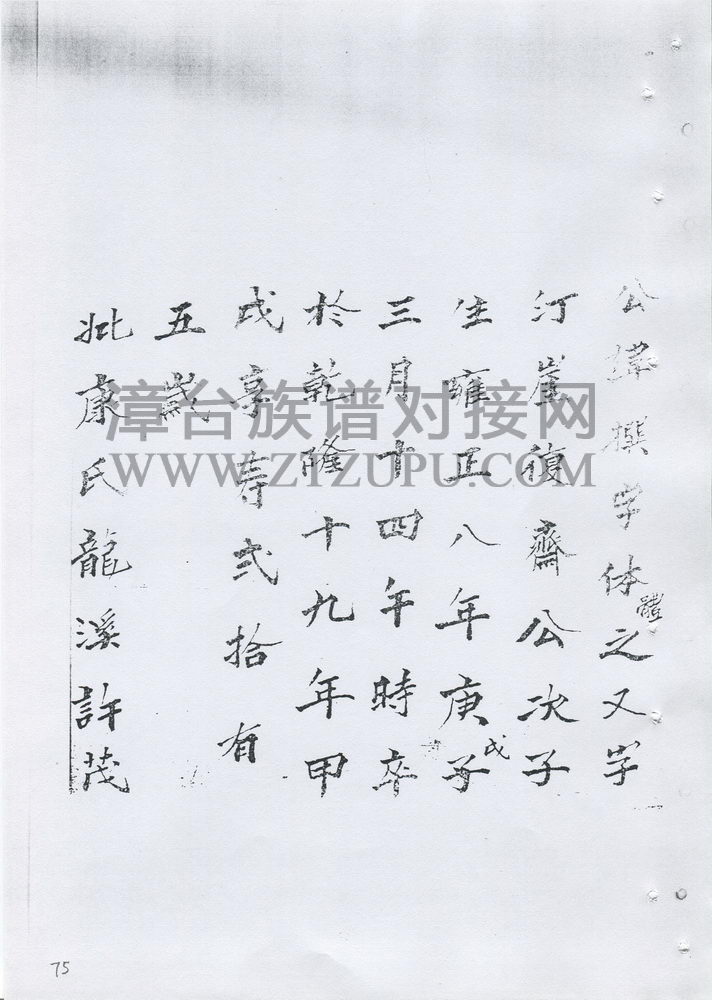 公諱撰字体之又字
體
汀崖復齋公次子
生雍正八年庚子
戌
三月十四午時卒
於乾隆十九年甲
戌享壽弍拾有
五歲
妣康氏龍溪許茂
漳台族谱对接网
WWW.ZTZUPU.COM
75